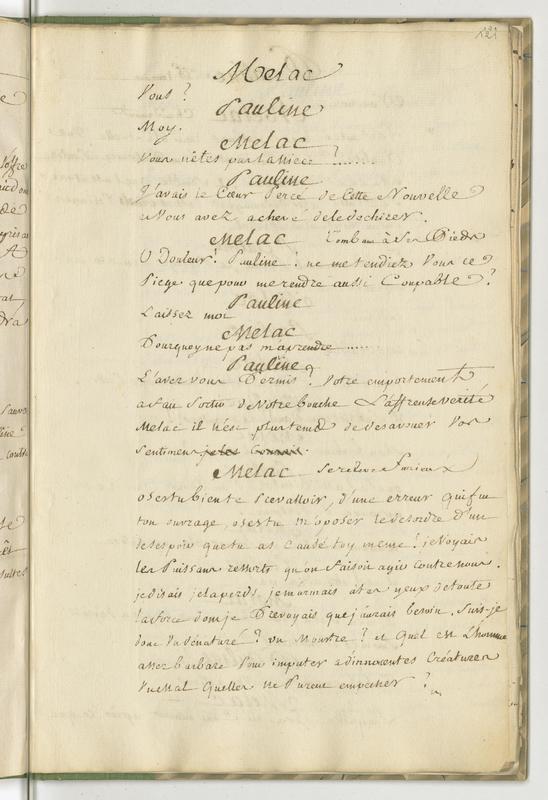 121
Melac
Vous ?
Pauline
Moy.
Melac
Vous n'etes pas sa niece ? ......
Pauline
J'avais le Cœur Percé de Cette Nouvelle
Vous avez achevé de le dechirer.
Melac Tombant à Ses Pieds
O Douleur ! Pauline ! ne me tendiez Vous ce
Piege que pour me rendre aussi Coupable ?
Laissez moi
Pauline
Melac
Pourquoy ne pas m'aprendre ......
Pauline
L'avez Vous Permis ? Votre emportement
a fait Sortir de Votre bouche L'affreuse Verité
Melac il n'est plus tems de desavouer Vos
Sentimens
Melac Se releve Furieux
oses tu bien te Prevalloir, d'une erreur qui fut
ton ouvrage, oses tu m'oposer le desordre d'un
desespoir que tu as Causé toy meme ! je Voyais
les Puissans ressorts qu'on faisoit agir contre nous.
je disais je la perds je m'armais à tes yeux de toute
la force dont je Prevoyais que j'aurais besoin. Suis-je
donc Un dénaturé ? un Monstre ? et Quel est L'homme
assez barbare Pour imputer a d'innocentes Créatures
Un Mal Quelles ne Purent empecher ?